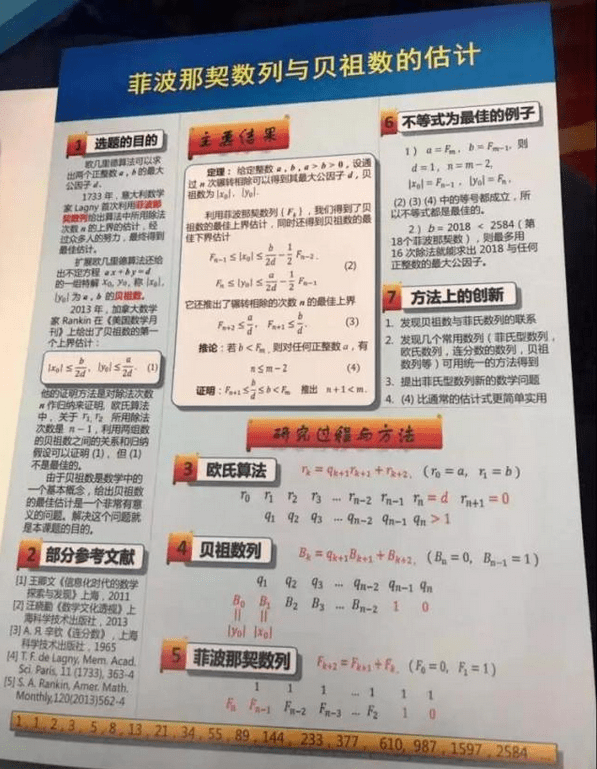 菲波那契数列与贝祖数的估计
1 选题的目的
欧几里德算法可以求
出两个正整数 a, b 的最大
公因子 d.
1733 年，意大利数学
家 Lagny 首次利用菲波那
契数列给出算法中所用除法
次数 n 的上界的估计，经
过众多人的努力，最终得到
最佳估计。
扩展欧几里德算法还给
出不定方程 ax + by = d
的一组特解 x₀, y₀, 称 |x₀|,
|y₀| 为 a, b 的贝祖数。
2013 年，加拿大数学
家 Rankin 在《美国数学月
刊》上给出了贝祖数的第一
个上界估计：
|x₀| ≤ b/2d, |y₀| ≤ a/2d. (1)
他的证明方法是对除法次数
n 作归纳来证明, 欧氏算法
中，关于 r₁, r₂ 所用除法
次数是 n − 1, 利用两组数
的贝祖数之间的关系和归纳
假设可以证明 (1)、但 (1)
不是最佳的。
由于贝祖数是数学中的
一个基本概念，给出贝祖数
的最佳估计是一个非常有意
义的问题。解决这个问题就
是本课题的目的。
2 部分参考文献
[1] 王卿文《信息化时代的数学
探索与发现》上海，2011
[2] 汪晓勤《数学文化透视》上
海科学技术出版社，2013
[3] А. Я. 辛钦《连分数》，上海
科学技术出版社，1965
[4] T. F. de Lagny, Mem. Acad.
Sci. Paris, 11 (1733), 363-4
[5] S. A. Rankin, Amer. Math.
Monthly,120(2013)562-4
主要结果
定理：给定整数 a, b, a > b > 0, 设通
过 n 次辗转相除可以得到其最大公因子 d, 贝
祖数为 |x₀|, |y₀|.
利用菲波那契数列 {Fₖ}，我们得到了贝
祖数的最佳上界估计，同时还得到贝祖数的最
佳下界估计
Fₙ₋₁ ≤ |x₀| ≤ b/2d − 1/2 Fₙ₋₂.
(2)
Fₙ ≤ |y₀| ≤ a/2d − 1/2 Fₙ₋₁
它还推出了辗转相除的次数 n 的最佳上界
Fₙ₊₂ ≤ a/d, Fₙ₊₁ ≤ b/d. (3)
推论：若 b < Fₘ, 则对任何正整数 a，有
n ≤ m − 2 (4)
证明：Fₙ₊₁ ≤ b/d ≤ b < Fₘ 推出 n + 1 < m.
6 不等式为最佳的例子
1）a = Fₘ, b = Fₘ₋₁, 则
d = 1, n = m − 2,
|x₀| = Fₙ₋₁, |y₀| = Fₙ,
(2) (3) (4) 中的等号都成立，所
以不等式都是最佳的。
2）b = 2018 < 2584（第
18个菲波那契数），则最多用
16 次除法就能求出 2018 与任何
正整数的最大公因子。
7 方法上的创新
1. 发现贝祖数与菲氏数列的联系
2. 发现几个常用数列（菲氏型数列，
欧氏数列，连分数的数列，贝祖
数列等）可用统一的方法得到
3. 提出菲氏型数列新的数学问题
4. (4) 比通常的估计式更简单实用
研究过程与方法
3 欧氏算法 rₖ = qₖ₊₁rₖ₊₁ + rₖ₊₂, (r₀ = a, r₁ = b)
r₀ r₁ r₂ r₃ ... rₙ₋₂ rₙ₋₁ rₙ = d rₙ₊₁ = 0
q₁ q₂ q₃ ... qₙ₋₂ qₙ₋₁ qₙ > 1
4 贝祖数列 Bₖ = qₖ₊₁Bₖ₊₁ + Bₖ₊₂, (Bₙ = 0, Bₙ₋₁ = 1)
q₁ q₂ q₃ ... qₙ₋₂ qₙ₋₁ qₙ
B₀ B₁ B₂ B₃ ... Bₙ₋₂ 1 0
|| ||
|y₀| |x₀|
5 菲波那契数列 Fₖ₊₂ = Fₖ₊₁ + Fₖ, (F₀ = 0, F₁ = 1)
1 1 1 ... 1 1 1
Fₙ Fₙ₋₁ Fₙ₋₂ Fₙ₋₃ ... F₂ 1 0
1, 1, 2, 3, 5, 8, 13, 21, 34, 55, 89, 144, 233, 377, 610, 987, 1597, 2584 ...